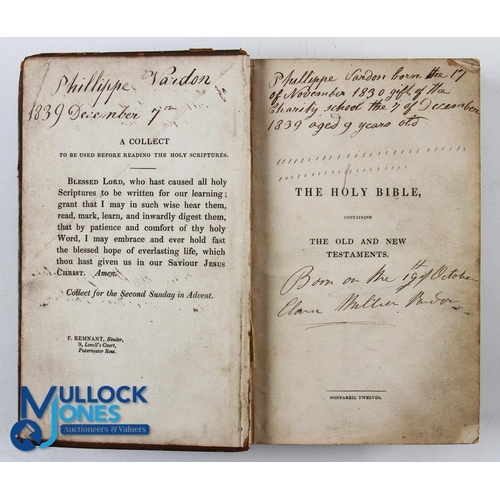 Phillippe Vardon
1839 December 7th
A COLLECT
TO BE USED BEFORE READING THE HOLY SCRIPTURES.
BLESSED LORD, who has caused all holy
Scriptures to be written for our learning;
grant that I may in such wise hear them,
read, mark, learn, and inwardly digest them,
that by patience and comfort of thy holy
Word, I may embrace and ever hold fast
the blessed hope of everlasting life, which
thou hast given us in our Saviour JESUS
CHRIST. Amen.
Collect for the Second Sunday in Advent.
F. REMNANT, Binder,
9, Lovell's Court,
Paternoster Row.
MULLOCK
JONES
Auctioneers & Valuers
Phillippe Vardon born the 17
of November 1830 gift of the
Charity school the 7 of december
1839 aged 9 years old
THE HOLY BIBLE,
CONTAINING
THE OLD AND NEW
TESTAMENTS.
Born on the 19 of October
Vardon
NONPAREIL TWELVES.